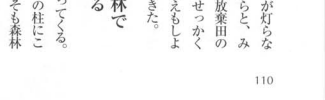 が灯らな
らと、み
放棄田の
せっかく
えもしよ
きた。
林で
る
ってくる。
の柱にこ
そも森林
110